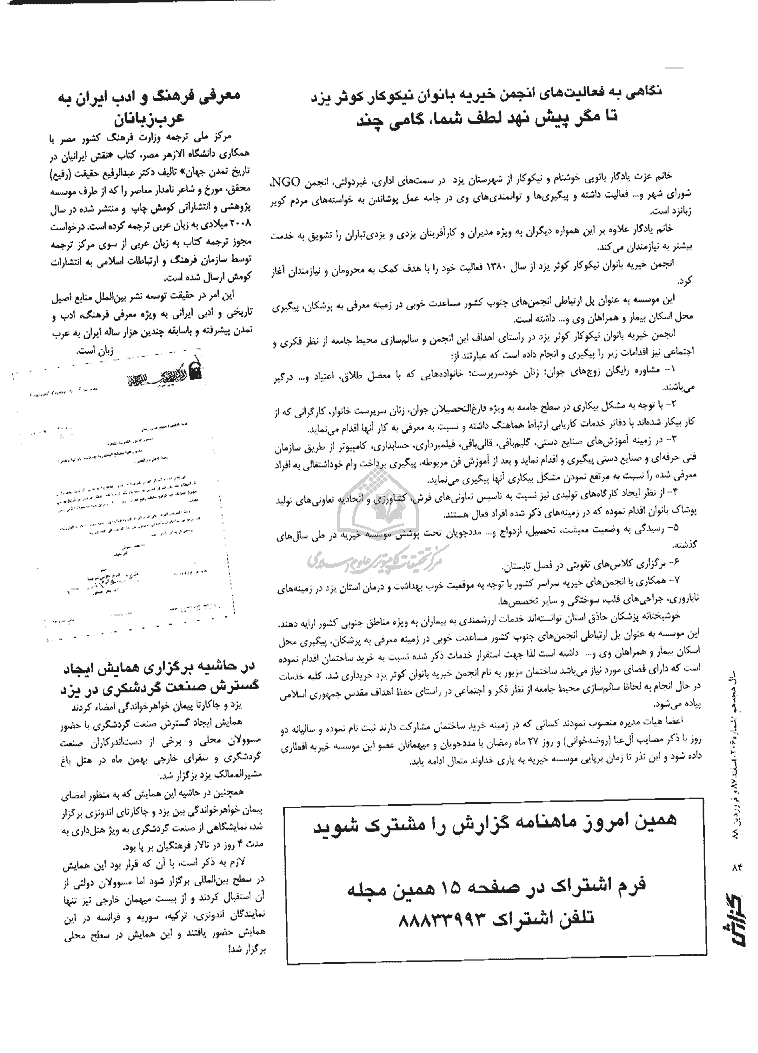 نگاهی به فعالیت‌های انجمن خیریه بانوان نیکوکار کوثر یزد
تا مگر پیش نهد لطف شما، گامی چند
خانم عزت یادگار بانویی خوشنام و نیکوکار از شهرستان یزد در سمت‌های اداری، غیردولتی، انجمن NGO،
شورای شهر و... فعالیت داشته و پیگیری‌ها و توانمندی‌های وی در جامه عمل پوشاندن به خواسته‌های مردم کویر
زبانزد است.
خانم یادگار علاوه بر این همواره دیگران به ویژه مدیران و کارآفرینان یزدی و یزدی‌تباران را تشویق به خدمت
بیشتر به نیازمندان می‌کند.
انجمن خیریه بانوان نیکوکار کوثر یزد از سال ۱۳۸۰ فعالیت خود را با هدف کمک به محرومان و نیازمندان آغاز
کرد.
این موسسه به عنوان پل ارتباطی انجمن‌های جنوب کشور مساعدت خوبی در زمینه معرفی به پزشکان، پیگیری
محل اسکان بیمار و همراهان وی و... داشته است.
انجمن خیریه بانوان نیکوکار کوثر یزد در راستای اهداف این انجمن و سالم‌سازی محیط جامعه از نظر فکری و
اجتماعی نیز اقدامات زیر را پیگیری و انجام داده است که عبارتند از:
۱- مشاوره رایگان زوج‌های جوان؛ زنان خودسرپرست؛ خانواده‌هایی که با معضل طلاق، اعتیاد و... درگیر
می‌باشند.
۲- با توجه به مشکل بیکاری در سطح جامعه به ویژه فارغ‌التحصیلان جوان، زنان سرپرست خانوار، کارگرانی که از
کار بیکار شده‌اند با دفاتر خدمات کاریابی ارتباط هماهنگ داشته و نسبت به معرفی به کار آنها اقدام می‌نماید.
۳- در زمینه آموزش‌های صنایع دستی، گلیم‌بافی، قالی‌بافی، فیلمبرداری، حسابداری، کامپیوتر از طریق سازمان
فنی حرفه‌ای و صنایع دستی پیگیری و اقدام نماید و بعد از آموزش فن مربوطه، پیگیری پرداخت وام خوداشتغالی به افراد
معرفی شده را نسبت به مرتفع نمودن مشکل بیکاری آنها پیگیری می‌نماید.
۴- از نظر ایجاد کارگاه‌های تولیدی نیز نسبت به تاسیس تعاونی‌های فرش، کشاورزی و اتحادیه تعاونی‌های تولید
پوشاک بانوان اقدام نموده که در زمینه‌های ذکر شده افراد فعال هستند.
۵- رسیدگی به وضعیت معیشت، تحصیل، ازدواج و... مددجویان تحت پوشش موسسه خیریه در طی سال‌های
گذشته.
۶- برگزاری کلاس‌های تقویتی در فصل تابستان.
۷- همکاری با انجمن‌های خیریه سراسر کشور با توجه به موقعیت خوب بهداشت و درمان استان یزد در زمینه‌های
ناباروری، جراحی‌های قلب، سوختگی و سایر تخصص‌ها.
خوشبختانه پزشکان حاذق استان توانسته‌اند خدمات ارزشمندی به بیماران به ویژه مناطق جنوبی کشور ارایه دهند.
این موسسه به عنوان پل ارتباطی انجمن‌های جنوب کشور مساعدت خوبی در زمینه معرفی به پزشکان، پیگیری محل
اسکان بیمار و همراهان وی و... داشته است لذا جهت استقرار خدمات ذکر شده نسبت به خرید ساختمان اقدام نموده
است که دارای فضای مورد نیاز می‌باشد ساختمان مزبور به نام انجمن خیریه بانوان کوثر یزد خریداری شد. کلیه خدمات
در حال انجام به لحاظ سالم‌سازی محیط جامعه از نظر فکر و اجتماعی در راستای حفظ اهداف مقدس جمهوری اسلامی
پیاده می‌شود.
اعضا هیات مدیره منصوب نمودند کسانی که در زمینه خرید ساختمان مشارکت دارند ثبت نام نموده و سالیانه دو
روز با ذکر مصایب آل‌عبا (روضه‌خوانی) و روز ۲۷ ماه رمضان با مددجویان و میهمانان عضو این موسسه خیریه افطاری
داده شود و این نذر تا زمان برپایی موسسه خیریه به یاری خداوند متعال ادامه یابد.
همین امروز ماهنامه گزارش را مشترک شوید
فرم اشتراک در صفحه ۱۵ همین مجله
تلفن اشتراک ۸۸۸۳۳۹۹۳
معرفی فرهنگ و ادب ایران به
عرب‌زبانان
مرکز ملی ترجمه وزارت فرهنگ کشور مصر با
همکاری دانشگاه الازهر مصر، کتاب «نقش ایرانیان در
تاریخ تمدن جهان» تالیف دکتر عبدالرفیع حقیقت (رفیع)
محقق، مورخ و شاعر نامدار معاصر را که از طرف موسسه
پژوهشی و انتشاراتی کومش چاپ و منتشر شده در سال
۲۰۰۸ میلادی به زبان عربی ترجمه کرده است. درخواست
مجوز ترجمه کتاب به زبان عربی از سوی مرکز ترجمه
توسط سازمان فرهنگ و ارتباطات اسلامی به انتشارات
کومش ارسال شده است.
این امر در حقیقت توسعه نشر بین‌الملل منابع اصیل
تاریخی و ادبی ایرانی به ویژه معرفی فرهنگ، ادب و
تمدن پیشرفته و باسابقه چندین هزار ساله ایران به عرب
زبان است.
در حاشیه برگزاری همایش ایجاد
گسترش صنعت گردشگری در یزد
یزد و جاکارتا پیمان خواهرخواندگی امضاء کردند
همایش ایجاد گسترش صنعت گردشگری با حضور
مسوولان محلی و برخی از دست‌اندرکاران صنعت
گردشگری و سفرای خارجی بهمن ماه در هتل باغ
مشیرالممالک یزد برگزار شد.
همچنین در حاشیه این همایش که به منظور امضای
پیمان خواهرخواندگی بین یزد و جاکارتای اندونزی برگزار
شد، نمایشگاهی از صنعت گردشگری به ویژ هتل‌داری به
مدت ۴ روز در تالار فرهنگیان بر پا بود.
لازم به ذکر است، با آن که قرار بود این همایش
در سطح بین‌المللی برگزار شود اما مسوولان دولتی از
آن استقبال کردند و از بیست میهمان خارجی نیز تنها
نمایندگان اندونزی، ترکیه، سوریه و فرانسه در این
همایش حضور یافتند و این همایش در سطح محلی
برگزار شد!
سال هجدهم، شماره ۲۰۶، اسفند ۸۷ و فروردین ۸۸
۸۴
گزارش